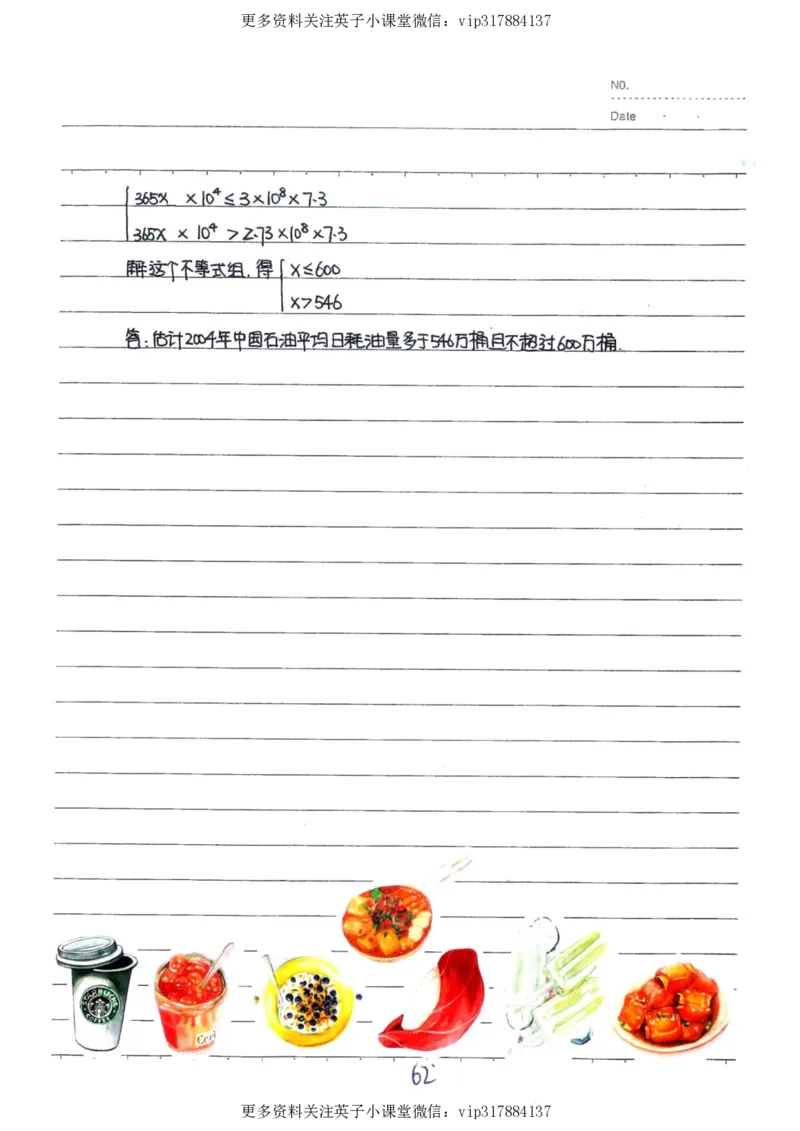 更多资料关注英子小课堂微信：vip317884137
NO.
Date
365x ×10⁴≤3×10⁸×7.3
365x ×10⁴>2.73×10⁸×7.3
解这个不等式组，得 x≤600
x>546
答：估计2004年中国石油平均日耗油量多于546万桶且不超过600万桶.
STARBUCKS
62
更多资料关注英子小课堂微信：vip317884137